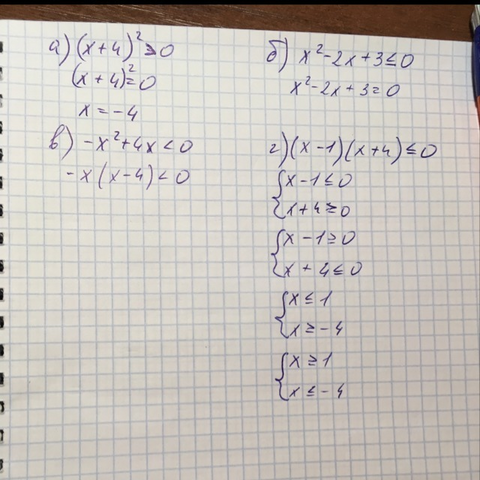 а) (x+4)² > 0
(x+4)² = 0
x = -4
б) x² - 2x + 3 ≤ 0
x² - 2x + 3 = 0
в) -x² + 4x < 0
-x(x-4) < 0
г) (x-1)(x+4) ≤ 0
x - 1 ≤ 0
x + 4 ≥ 0
x - 1 ≥ 0
x + 4 ≤ 0
x ≤ 1
x ≥ -4
x ≥ 1
x ≤ -4